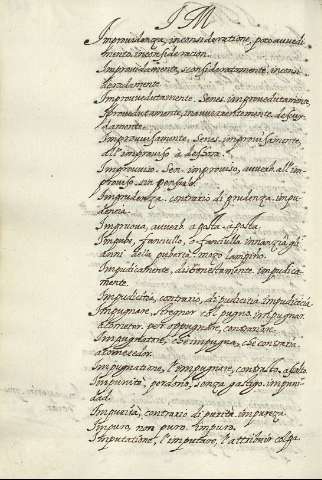 I M
Improvidenza, inconsideratione, poco avvedi-
mento. inconsideracion.
Improvidamente, sconsideratamente, inconsi-
deradamente.
Improvedutamente. Senes. improvedutamente,
Sprovedutamente, inavvertentemente descui-
dadamente.
Improvisamente, Senes. improvisamente,
all'improviso à deshora.
Improviso. Sen. improviso, avverb. all'im-
proviso. sin pensarlo.
Imprudenza. contrario di prudenza. impru-
dencia.
Impruova, avverb. a posta. a posta
Impube, fanciullo, o fanciulla innanzi gli
anni della pubertà. moço lampiño.
Impudicamente, disonestamente. impudica-
mente.
Impudicitia, contrario, di pudicitia. impudicicia
Impugnare, stregner col pugno. impugnar.
acometer, per oppugnare, contrastare.
Impugnatore, che impugna, che contrasta
acometedor.
Impugnatione, l'impugnare, contrasto. assalto.
Impunità, perdono, senza gastigo. impuni-
dad.
Impurità, contrario di purità. impureza.
Impuro, non puro. impuro.
Imputatione, l'imputare, l'attribuir colpa.